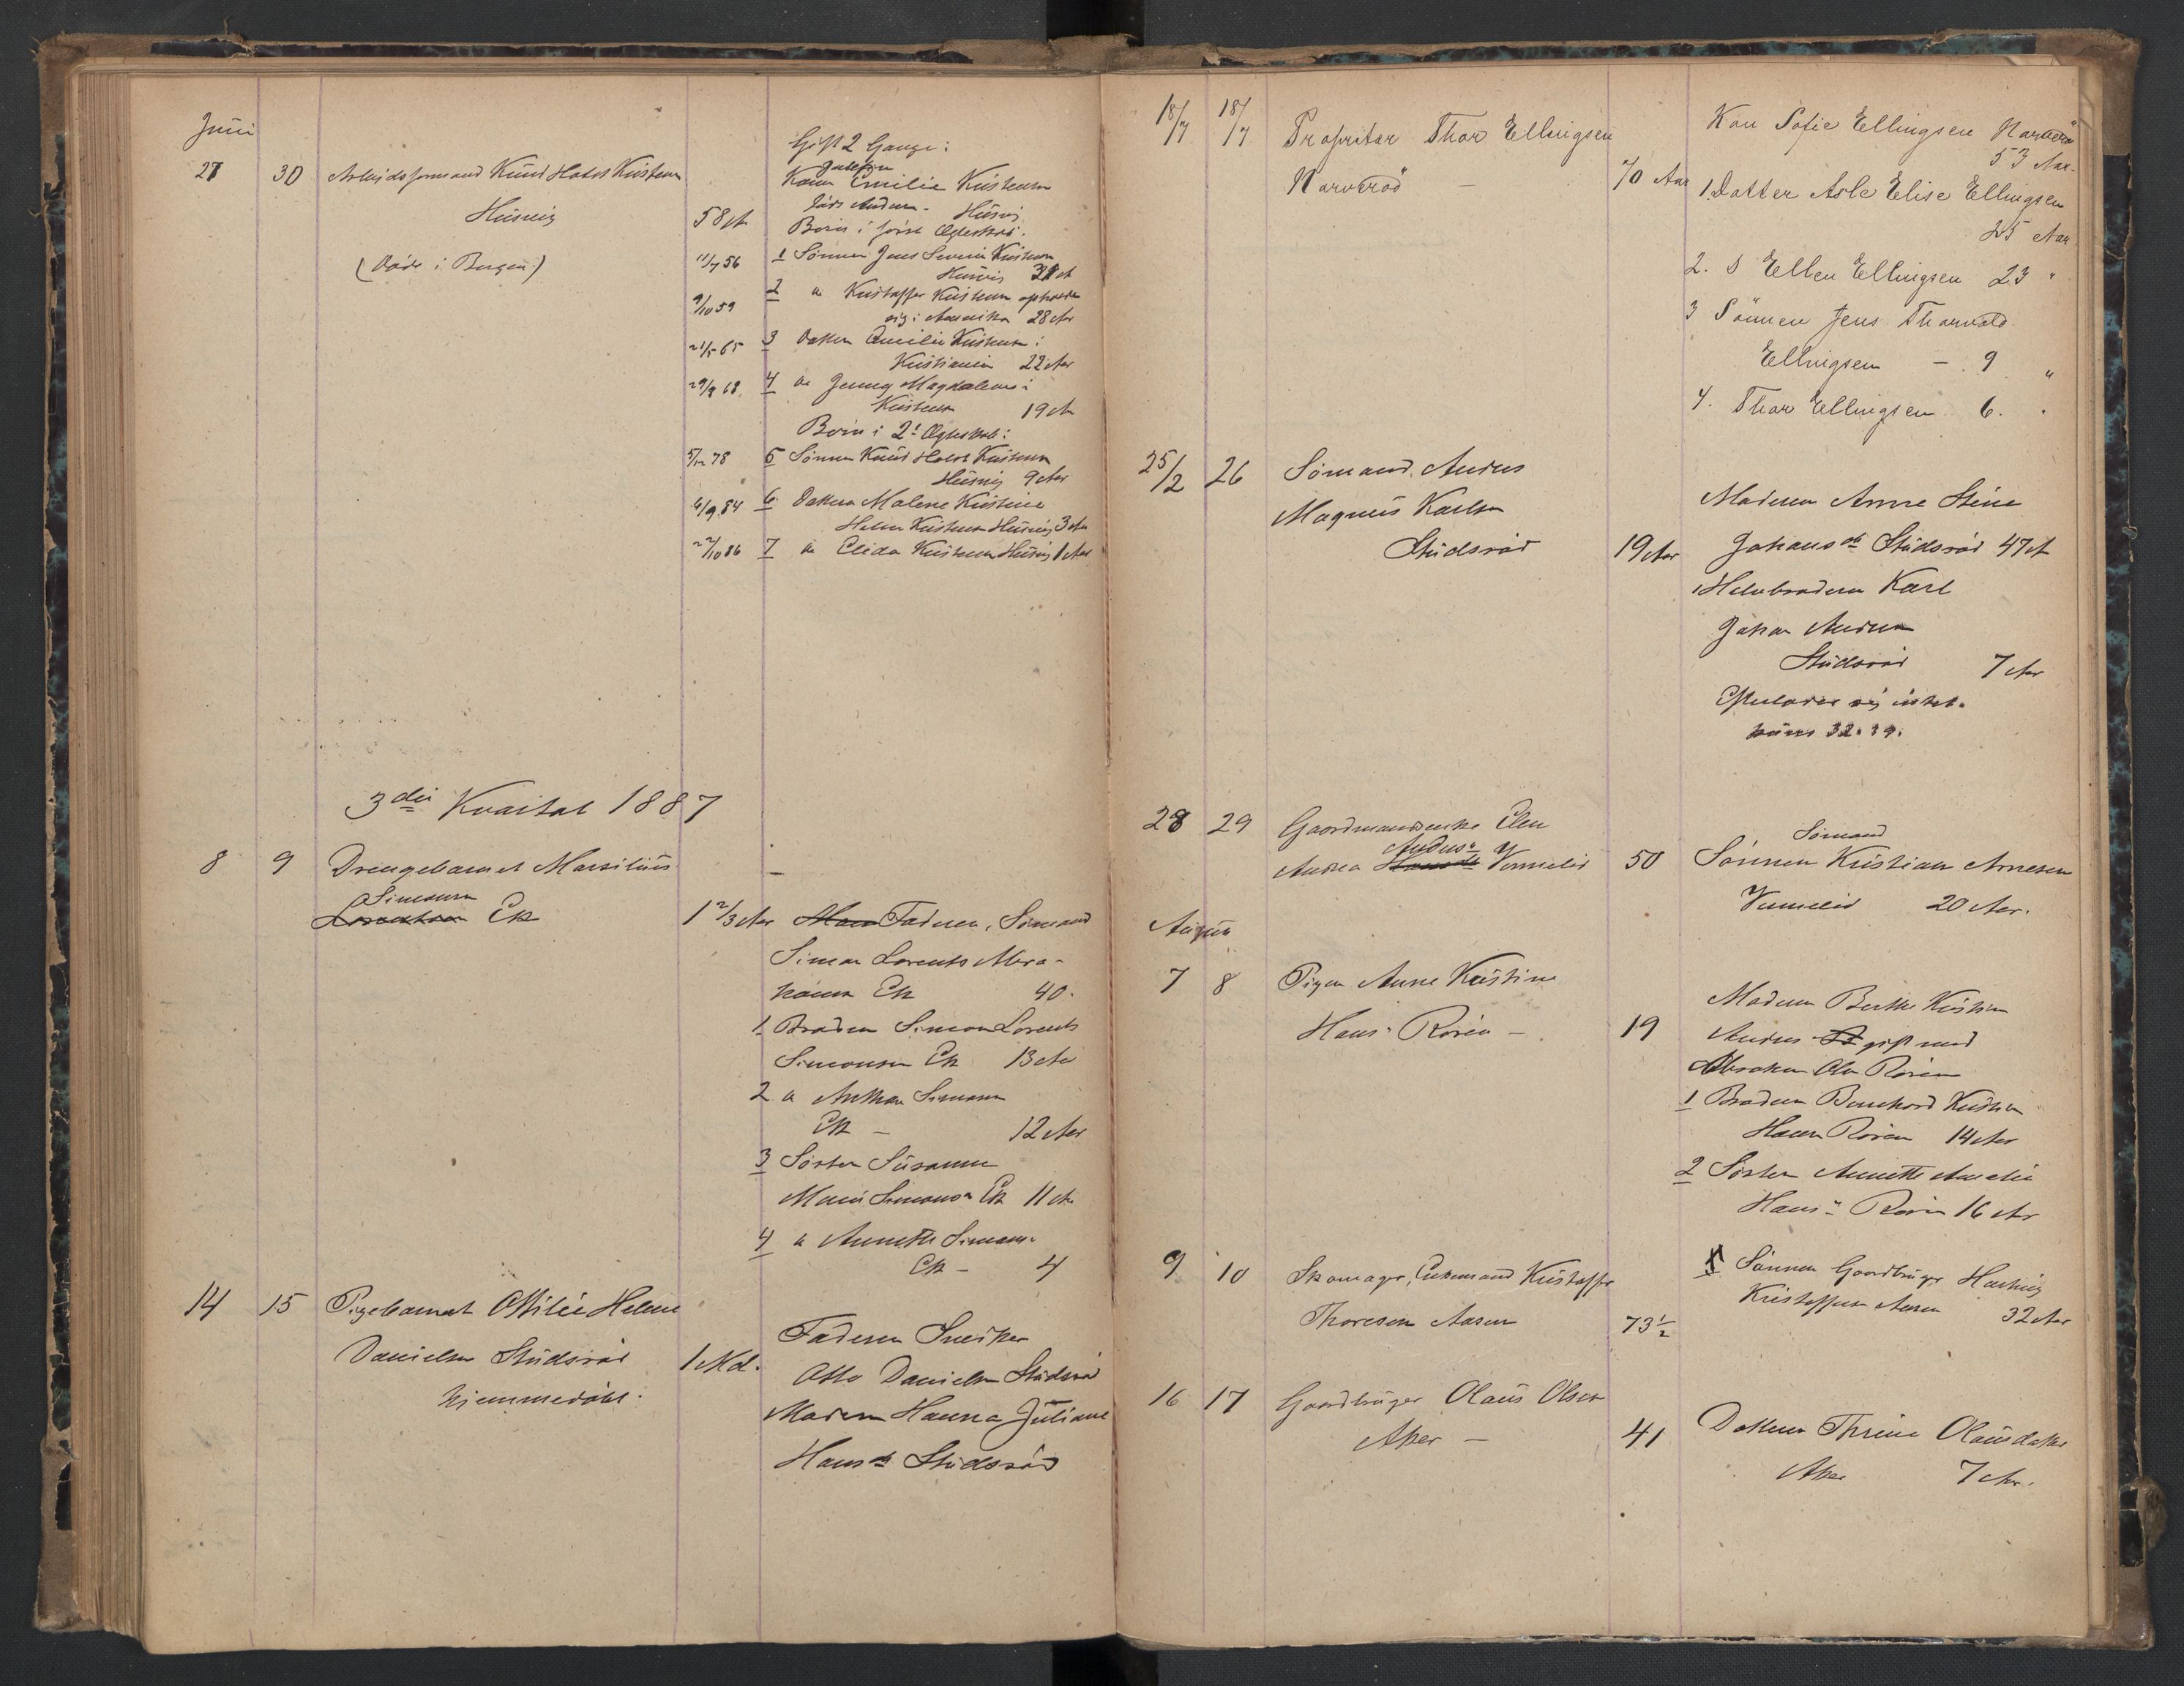 Juni
27 30 Arbeidsformand Knud Holst Kristensen
Husvig 58 Ar
(Døde i Bergen)
Gift 2 Gange:
Kona Emilie Kristensen
Husvig
Børn i første Ægteskab.
11/7 56 1 Sønnen Jens Severin Kristensen
Husvig 31 Ar
9/10 59 2 " Kristoffer Kristensen opholder
sig i Amerika 28 Aar
21/5 65 3 Datter Emilie Kristensen i
Kristiania 22 Aar
29/3 68 4 " Jenny Magdalene
Kristensen 19 Aar
Børn i 2t Ægteskab:
5/12 78 5 Sønnen Knud Holst Kristensen
Husvig 9 Aar
6/9 84 6 Datter Malene Kristine
Helene Kristensen Husvig 3 Aar
22/10 86 7 " Elida Kristensen Husvig 1 Aar
3die Kvartal 1887
8 9 Drengebarnet Marsilius
Simonsen
Ek 1 2/3 Aar Faderen, Sømand
Simon Lorents Abra-
hamsen Ek 40.
1 Broderen Simon Lorents
Simonsen Ek 13 Aar
2 " Anthon Simonsen
Ek – 12 Aar
3 Søster Susanne
Marie Simonsen Ek 11 Ar
4 " Annette Simons.
Ek – 4
14 15 Pigebarnet Ottilie Helene
Danielsen Studsrød 1 Md.
hjemmedøbt.
Faderen Snedker
Otto Danielsen Studsrød
Moderen Hanna Juliane
Hansd. Studsrød
18/7 18/7 Propritær Thor Ellingsen
Narverød – 70 Aar
Kon Sofie Ellingsen Narverø
53 Aar.
1. Datter Asle Elise Ellingsen
25 Aar
2. D Ellen Ellingsen 23 "
3 Sønnen Jens Thorvald
Ellingsen – 9 "
4. Thor Ellingsen 6. "
25/2 26 Sømand Andreas
Magnus Karlsen
Studsrød 19 Aar
Moderen Anne Stine
Johansd. Studsrød 47 Ar
Halvbroderen Karl
Johan Andersen
Studsrød 7 Aar
32. 39.
28 29 Gaardmandsenke Elen
Andrea Anders. Vemelid 50
Sømand
Sønnen Kristian Arnesen
Vemelid 20 Aar.
August
7 8 Pigen Anne Kristine
Hans. Røren – 19
Moderen Berthe Kristine
Anders. gift med
Abraham Olsen Røren
1 Broderen Bernhard Kristian
Hansen Røren 14 Aar
2 Søster Annette Amalie
Hans. Røren 16 Ar
9 10 Skomager, Enkemand Kristoffer
Thoresen Aasen 73 1/2
1 Sønnen Gaardbruger Hartvig
Kristoffersen Aasen 32 Aar
16 17 Gaardbruger Olaus Olsen
Aker – 41
Datteren Thrine Olausdatter
Aker 7 Ar.